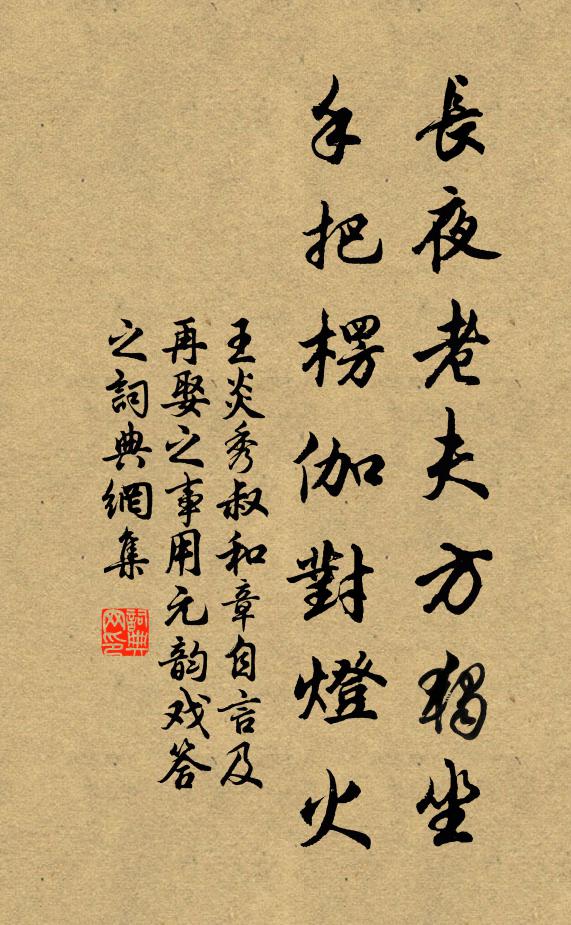 長夜老夫方獨坐
手把楞伽對燈火
王炎秀叔和章自言及
再娶之事用元韵戏答
之詞典網集
詞典网印